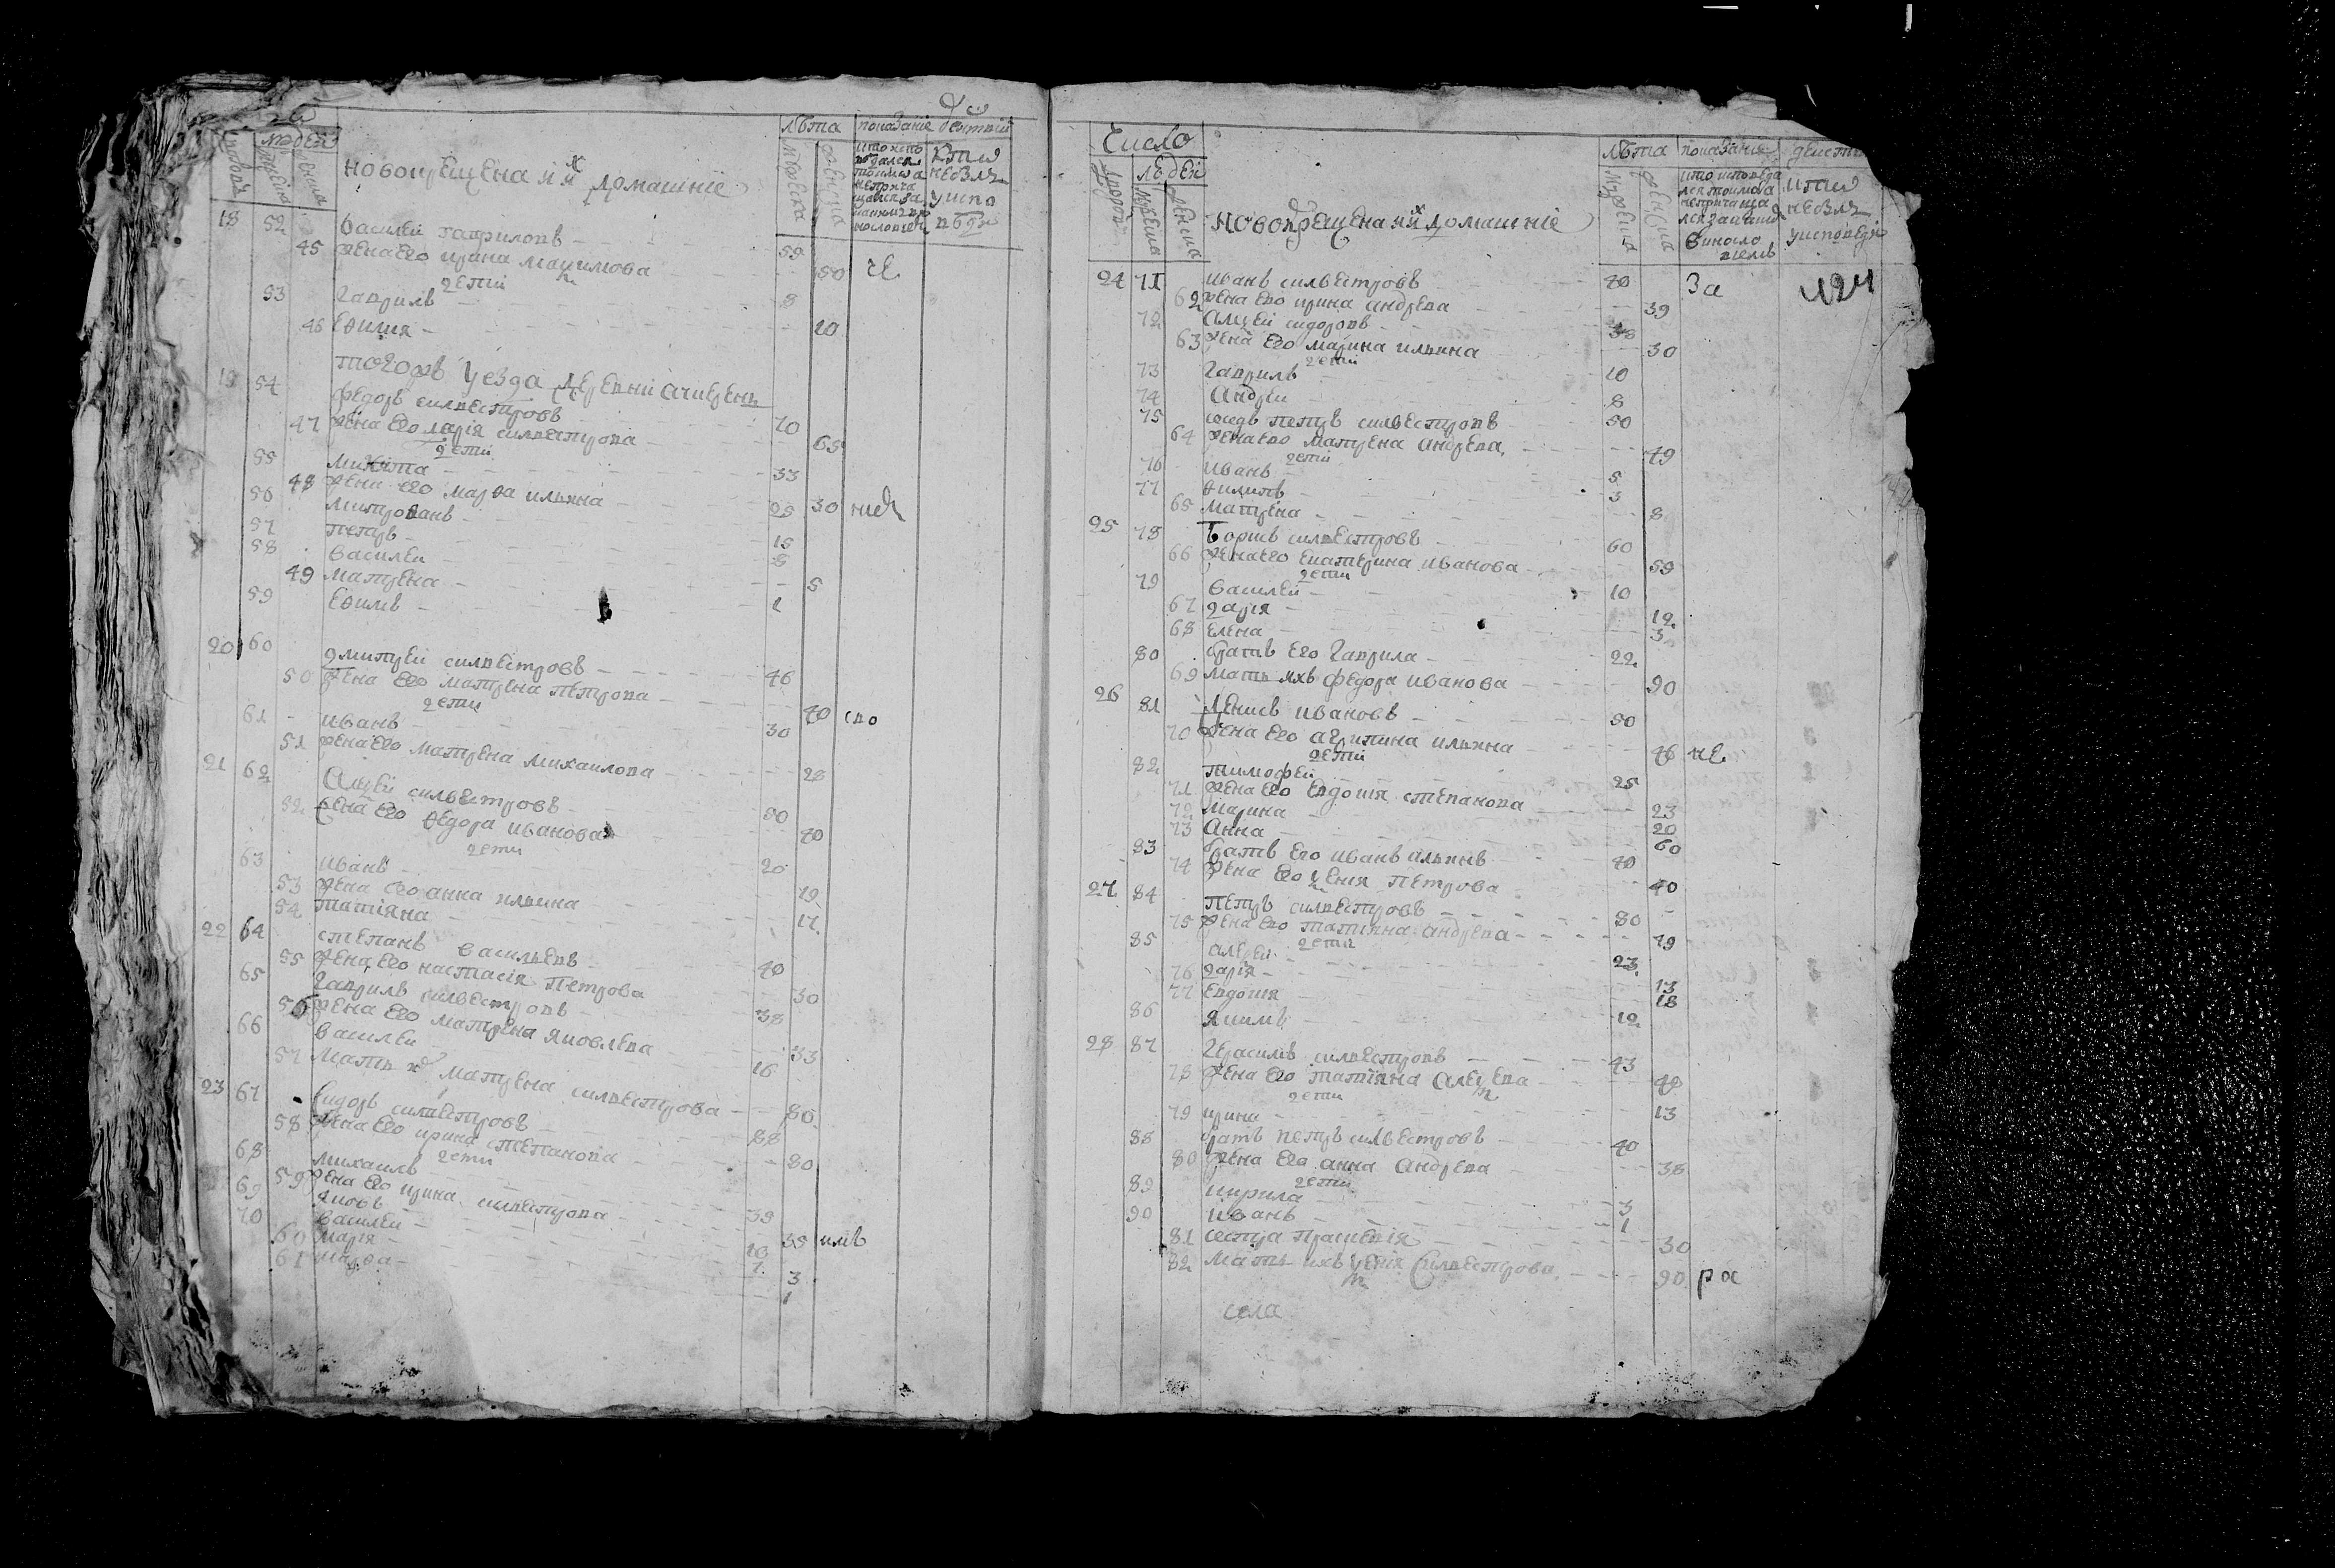 людей
новокрещена и их домашние
лѣта
показание
18 52 василей гавриловъ 59
45 жена его ирина маѯимова 50 не
дети
53 гаврилъ 8
46 ефимия 10
тогожъ уезда деревни ачиверепь
19 54 федоръ силвестровъ 70
47 жена его дарія силвестрова 65
дети
55 микита 33
48 жена его марѳа ильина 30
56 митрованъ 25
57 петръ 15
58 василеи 8
49 матрена 5
59 еѳимъ 1
20 60 дмитреи силвестровъ 46
50 жена его матрена петрова 40 спо
дети
61 иванъ 30
51 жена его матрена михаилова 28
21 62 алѯеи силвестровъ 80
52 жена его ѳедора иванова 70
дети
63 иванъ 20
53 жена его анна ильина 19
54 татіяна 17
22 64 степанъ василевъ 40
55 жена его настасія петрова 30
65 гаврилъ силвестровъ 38
56 жена его матрена яковлева 33
66 василеи 16
57 мать их матрена силвестрова 80
23 67 сидоръ силвестровъ 88
58 жена его ирина степанова 80
дети
68 михаилъ 39
59 жена его ирина силвестрова 35 имъ
69 яковъ 10
70 василеи 7
60 марія 3
61 марѳа 1
число
людей
новокрещена и их домашние
лѣта показание
24 71 иванъ силвестровъ 40 за
62 жена ево ирина андрева 39
72 алѯеи сидоровъ 38
63 жена его марина ильина 30
дети
73 гаврилъ 10
74 андреи 8
75 соседъ петръ силвестровъ 50
64 жена ево матрена андрева 49
дети
76 иванъ 5
77 ѳилипъ 3
65 матрена 8
25 78 борисъ силвестровъ 60
66 жена его екатерина иванова 59
дети
79 василей 10
67 дарія 12
68 елена 3
80 братъ его гаврила 22
69 мать ихъ федора иванова 90
26 81 денисъ ивановъ 50
70 жена его агрипина ильина 46 не
дети
82 тимофеи 25
71 жена его евдокия степанова 23
72 марина 20
73 анна
83 братъ его иванъ ильинъ 40
74 жена его ѯения петрова 40
27 84 петръ силвестровъ 80
75 жена его татияна андрева 79
дети
85 алеѯеи 23
76 дарія 13
77 евдокия 18
86 якимъ 12
28 87 герасимъ силвестровъ 43
78 жена его татияна алеѯева 40
дети
79 ирина 13
88 братъ петръ силвестровъ 40
80 жена его анна андрева 38
дети
89 кирила 3
90 иванъ 1
81 сестра прасковія 30
82 мать ихъ ѯенія силвестрова 90 ра
села